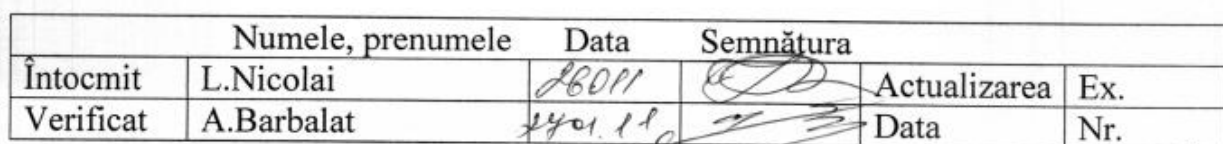 Numele, prenumele Data Semnătura
Întocmit L.Nicolai 26011 Actualizarea Ex.
Verificat A.Barbalat Data Nr.